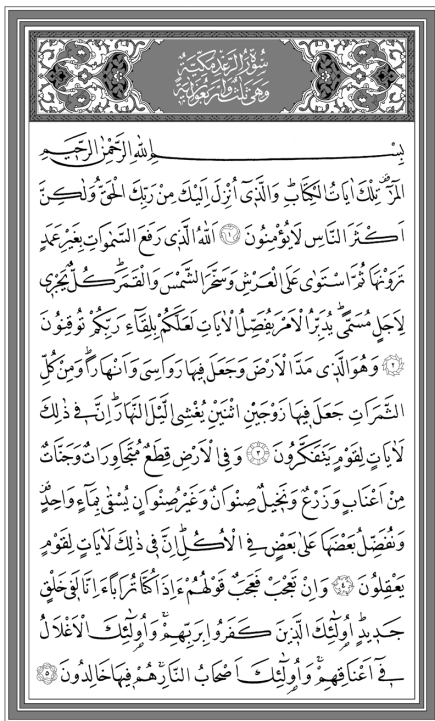 سُورَةُ الرَّعْدِ مَكِّيَّةٌ
وَهِيَ ثَلَثٌ وَاَرْبَعُونَ اٰيَةً
بِسْمِ اللّٰهِ الرَّحْمٰنِ الرَّحٖيمِ
الٓمٓرٰ تِلْكَ اٰيَاتُ الْكِتَابِۜ وَالَّذٖٓى اُنْزِلَ اِلَيْكَ مِنْ رَبِّكَ الْحَقُّ وَلٰكِنَّ
اَكْثَرَ النَّاسِ لَا يُؤْمِنُونَ ﴿١﴾ اَللّٰهُ الَّذٖى رَفَعَ السَّمٰوَاتِ بِغَيْرِ عَمَدٍ
تَرَوْنَهَا ثُمَّ اسْتَوٰى عَلَى الْعَرْشِ وَسَخَّرَ الشَّمْسَ وَالْقَمَرَۜ كُلٌّ يَجْرٖى
لِاَجَلٍ مُسَمًّىۜ يُدَبِّرُ الْاَمْرَ يُفَصِّلُ الْاٰيَاتِ لَعَلَّكُمْ بِلِقَٓاءِ رَبِّكُمْ تُوقِنُونَ
﴿٢﴾ وَهُوَ الَّذٖى مَدَّ الْاَرْضَ وَجَعَلَ فٖيهَا رَوَاسِىَ وَاَنْهَارًاۜ وَمِنْ كُلِّ
الثَّمَرَاتِ جَعَلَ فٖيهَا زَوْجَيْنِ اثْنَيْنِ يُغْشِى الَّيْلَ النَّهَارَۜ اِنَّ فٖى ذٰلِكَ
لَاٰيَاتٍ لِقَوْمٍ يَتَفَكَّرُونَ ﴿٣﴾ وَفِى الْاَرْضِ قِطَعٌ مُتَجَاوِرَاتٌ وَجَنَّاتٌ
مِنْ اَعْنَابٍ وَزَرْعٌ وَنَخٖيلٌ صِنْوَانٌ وَغَيْرُ صِنْوَانٍ يُسْقٰى بِمَٓاءٍ وَاحِدٍ
وَنُفَضِّلُ بَعْضَهَا عَلٰى بَعْضٍ فِى الْاُكُلِۜ اِنَّ فٖى ذٰلِكَ لَاٰيَاتٍ لِقَوْمٍ
يَعْقِلُونَ ﴿٤﴾ وَاِنْ تَعْجَبْ فَعَجَبٌ قَوْلُهُمْ ءَاِذَا كُنَّا تُرَابًا ءَاِنَّا لَفٖى خَلْقٍ
جَدٖيدٍۜ اُو۬لٰٓئِكَ الَّذٖينَ كَفَرُوا بِرَبِّهِمْۚ وَاُو۬لٰٓئِكَ الْاَغْلَالُ
فٖٓى اَعْنَاقِهِمْۚ وَاُو۬لٰٓئِكَ اَصْحَابُ النَّارِۚ هُمْ فٖيهَا خَالِدُونَ ﴿٥﴾